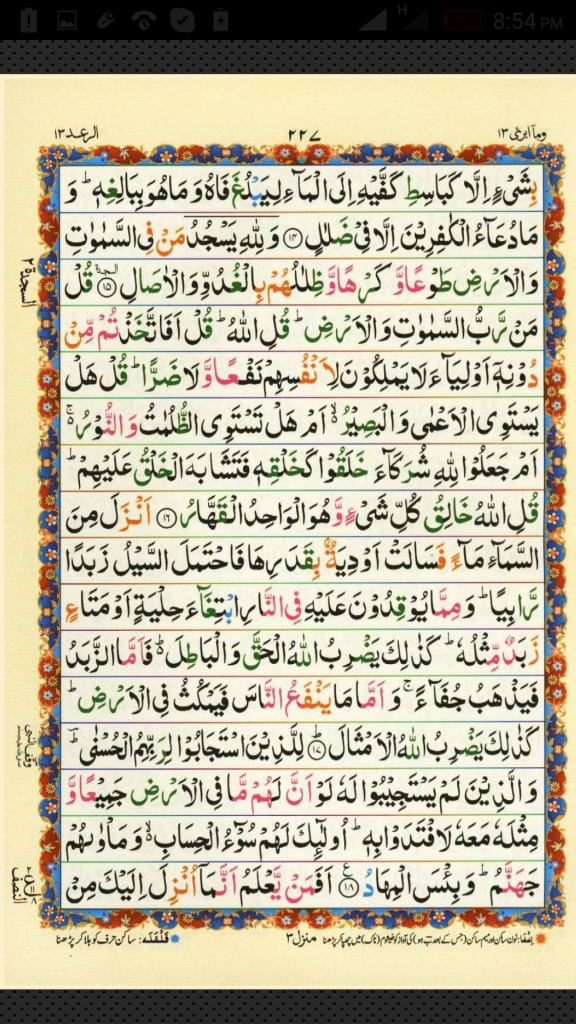 H 15% 8:54 PM
وما ابرئ ۱۳ ۲۲۷ الرعد ۱۳
بِشَیْءٍ اِلَّا كَبَاسِطِ كَفَّیْهِ اِلَى الْمَآءِ لِیَبْلُغَ فَاهُ وَ مَا هُوَ بِبَالِغِهٖ ؕ وَ
مَا دُعَآءُ الْكٰفِرِیْنَ اِلَّا فِیْ ضَلٰلٍ ﴿۱۴﴾ وَ لِلّٰهِ یَسْجُدُ مَنْ فِی السَّمٰوٰتِ
وَ الْاَرْضِ طَوْعًا وَّ كَرْهًا وَّ ظِلٰلُهُمْ بِالْغُدُوِّ وَ الْاٰصَالِ ﴿۱۵﴾ قُلْ
مَنْ رَّبُّ السَّمٰوٰتِ وَ الْاَرْضِ ؕ قُلِ اللّٰهُ ؕ قُلْ اَفَاتَّخَذْتُمْ مِّنْ
دُوْنِهٖۤ اَوْلِیَآءَ لَا یَمْلِكُوْنَ لِاَنْفُسِهِمْ نَفْعًا وَّ لَا ضَرًّا ؕ قُلْ هَلْ
یَسْتَوِی الْاَعْمٰى وَ الْبَصِیْرُ ۙ۬ اَمْ هَلْ تَسْتَوِی الظُّلُمٰتُ وَ النُّوْرُ ۚ۬
اَمْ جَعَلُوْا لِلّٰهِ شُرَكَآءَ خَلَقُوْا كَخَلْقِهٖ فَتَشَابَهَ الْخَلْقُ عَلَیْهِمْ ؕ
قُلِ اللّٰهُ خَالِقُ كُلِّ شَیْءٍ وَّ هُوَ الْوَاحِدُ الْقَهَّارُ ﴿۱۶﴾ اَنْزَلَ مِنَ
السَّمَآءِ مَآءً فَسَالَتْ اَوْدِیَةٌۢ بِقَدَرِهَا فَاحْتَمَلَ السَّیْلُ زَبَدًا
رَّابِیًا ؕ وَ مِمَّا یُوْقِدُوْنَ عَلَیْهِ فِی النَّارِ ابْتِغَآءَ حِلْیَةٍ اَوْ مَتَاعٍ
زَبَدٌ مِّثْلُهٗ ؕ كَذٰلِكَ یَضْرِبُ اللّٰهُ الْحَقَّ وَ الْبَاطِلَ ؕ۬ فَاَمَّا الزَّبَدُ
فَیَذْهَبُ جُفَآءً ۚ وَ اَمَّا مَا یَنْفَعُ النَّاسَ فَیَمْكُثُ فِی الْاَرْضِ ؕ
كَذٰلِكَ یَضْرِبُ اللّٰهُ الْاَمْثَالَ ﴿۱۷﴾ؕ لِلَّذِیْنَ اسْتَجَابُوْا لِرَبِّهِمُ الْحُسْنٰى ؕؔ
وَ الَّذِیْنَ لَمْ یَسْتَجِیْبُوْا لَهٗ لَوْ اَنَّ لَهُمْ مَّا فِی الْاَرْضِ جَمِیْعًا وَّ
مِثْلَهٗ مَعَهٗ لَافْتَدَوْا بِهٖ ؕ اُولٰٓىِٕكَ لَهُمْ سُوْٓءُ الْحِسَابِ ۙ۬ وَ مَاْوٰىهُمْ
جَهَنَّمُ ؕ وَ بِئْسَ الْمِهَادُ ﴿۱۸﴾ اَفَمَنْ یَّعْلَمُ اَنَّمَاۤ اُنْزِلَ اِلَیْكَ مِنْ
السجدة ۲
النصف
منزل ۳
قلقلہ: ساکن حرف کو ہلا کر پڑھنا